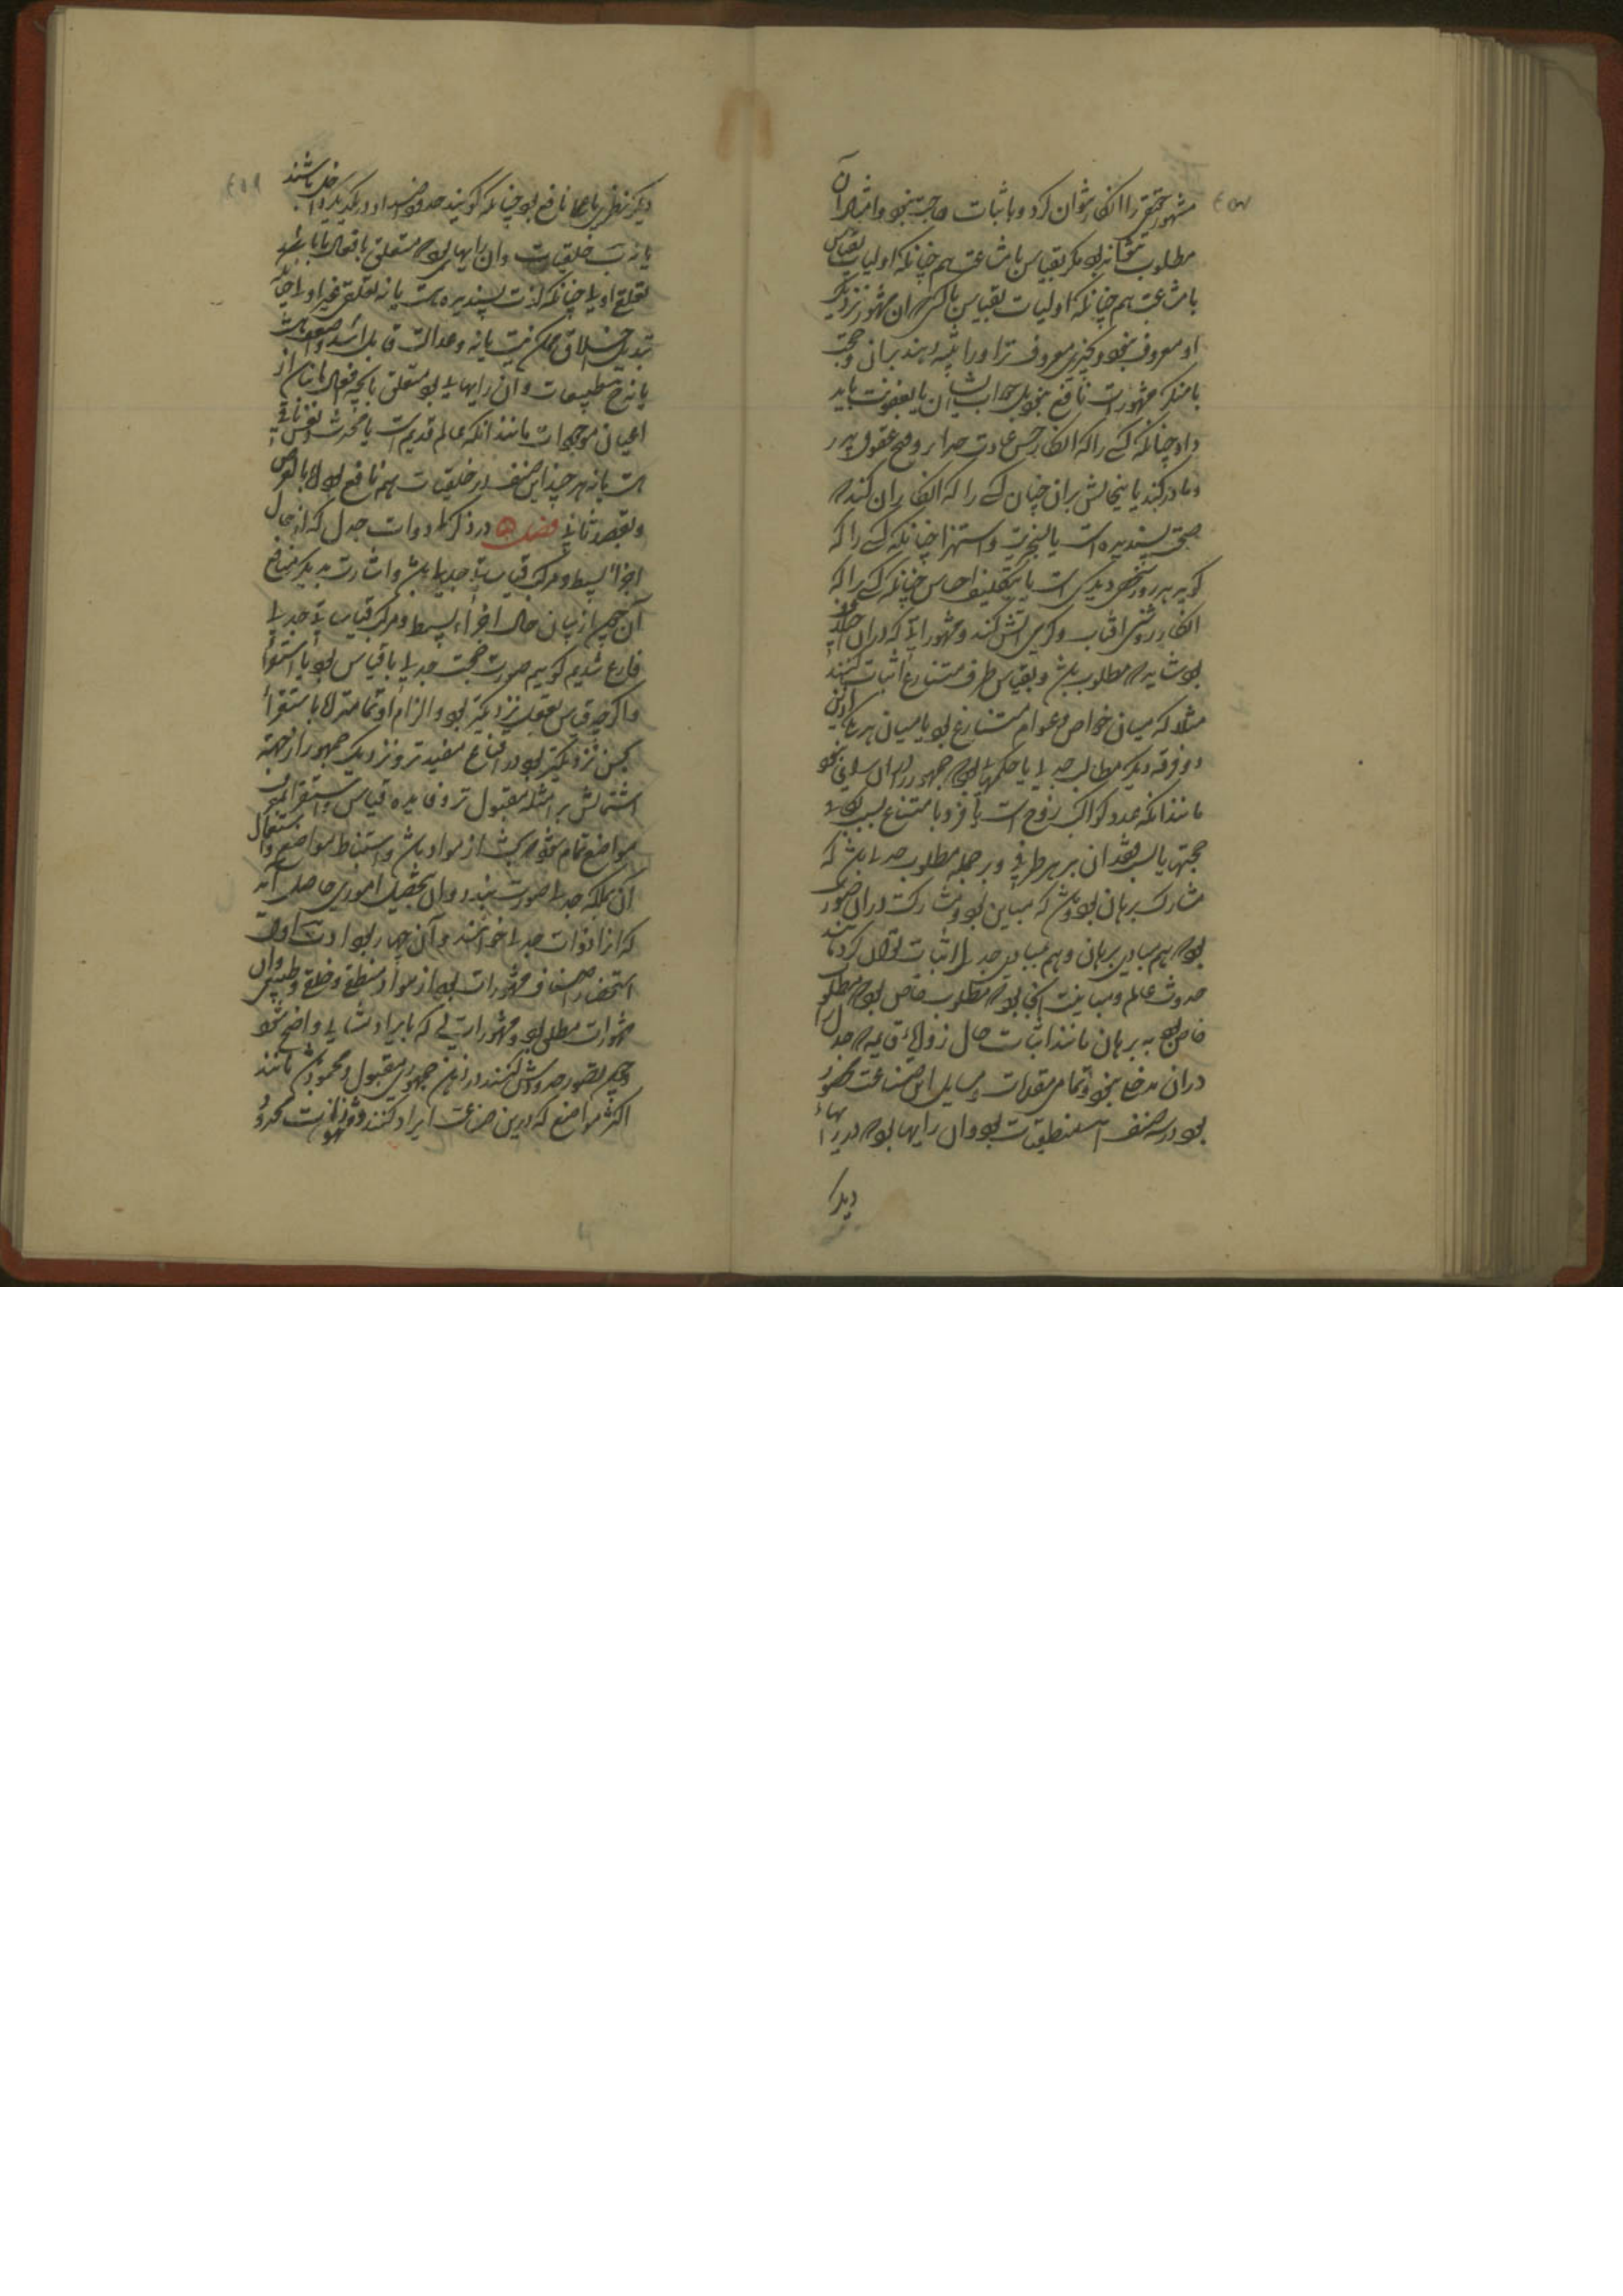 مشهور حقیقی را انکار نتوان کرد و باثبات حاجت نبود و امثال آن
مطلوب نتواند بود مگر بقیاس با مشاغب هم چنانکه اولیات بقیاس
با مشاغب هم چنانکه اولیات بقیاس با کسی که آن مشهور نزدیک
او معروف نبود و بچیزی معروف‌تر او را تنبیه دهند بیانی و حجت
با منکر مشهورات نافع نبود بل جواب ایشان یا بعقوبت باید
داد چنانکه کسی را که انکار حسن عبادت خدا و قبح عقوق پدر
و مادر کند یا بنجالش بران چنان کسی را که انکار آن کند که
صحت پسندیده است یا بسخریت و استهزا چنانکه کسی را که
گوید هر روز شخصی دیگری است یا بتکلیف احساس چنانکه کسی را که
انکار روشنی آفتاب و گرمی آتش کند و مشهوراتی که دران خلاف
بود شاید که مطلوب باشد و بقیاس طرف متنازع اثبات کنند
مثلا که میان خواص و عوام متنازع بود یا میان هر یکی ازین
دو فرقه دیگر مطالب جدلی یا حکمهائی بود که جمهور را دران رایی نبود
مانند آنکه عدد کواکب زوج است یا فرد یا متنازع بسبب تکافی
حجتها یا بسبب فقدان بر هر طرفی و بر جمله مطلوب جدلی باشد که
مشارک برهان بود و باشد که مباین بود و مشارکت دران صورت
بود که هم بمبادی برهان و هم بمبادی جدل اثبات توان کرد مانند
حدوث عالم و مباینت آنجا بود که مطلوب خاص بود که مطلوب
خاص بود به برهان مانند اثبات حال زوایای قایمه که جدل را
دران مدخلی نبود و تمامی مقدمات و مسایل این صناعت محصور
بود در سه صنف ا منطقیات بود و آن رایها بود که در رایهاء
دیگر
دیگر نظری یا عملی نافع بود چنانکه گویند حدود اضداد در یکدیگر داخل باشند
یا نه ب خلقیات و آن رایهایی بود که متعلق بافعال ما باشد
تعلق اولی چنانکه لذت پسندیده هست یا نه تعلق غیر اولی چنانکه
تبدیل اخلاق ممکن نیست یا نه و عدالت قابل اشد و اضعف است
یا نه ج طبیعیات و آن رایهایی بود متعلق بآنچه فعل ما نباشد از
اعیان موجودات مانند آنکه عالم قدیم است یا محدث و نفس باقی
است یا نه هر چند این صنف در خلقیات هم نافع بود اما بالعرض
و بقصد ثانی فصل ۵ در ذکر ادوات جدل که از حال
اجزاء بسیط و مرکب قیاسات جدلی باشد و اشارت به دیگر منافع
آن چون از بیان حال اجزاء بسیط و مرکب قیاسات جدلی
فارغ شدیم گوییم صورت حجت جدلی یا قیاس بود یا استقرا
و اگر چه قیاس بعقل نزدیکتر بود و الزام او تمامتر اما استقرا
بحس نزدیکتر بود در اقناع مفیدتر و نزدیک جمهور از جهت
اشتمالش بر امثله مقبول‌تر و فایده قیاس و استقرا بمعرفت
مواضع تمام شود که بحث از مواد باشد و استنباط مواضع و استعمال
آن ملکه جدلی صورت بندد و آن بتحصیل اموری حاصل آید
که انرا ادوات جدلی خوانند و آن چهار بود ادات اول
استحضار اصناف مشهورات بود از مواد منطقی و خلقی و طبیعی و آن
مشهورات مطلق بود و مشهوراتی که بایراد مثالی واضح شود
و چون تصور حدودش کنند در ذهن جمهور مقبول و محمود باشد مانند
اکثر مواضع که درین صناعت ایراد کنند و مشهورات محدود